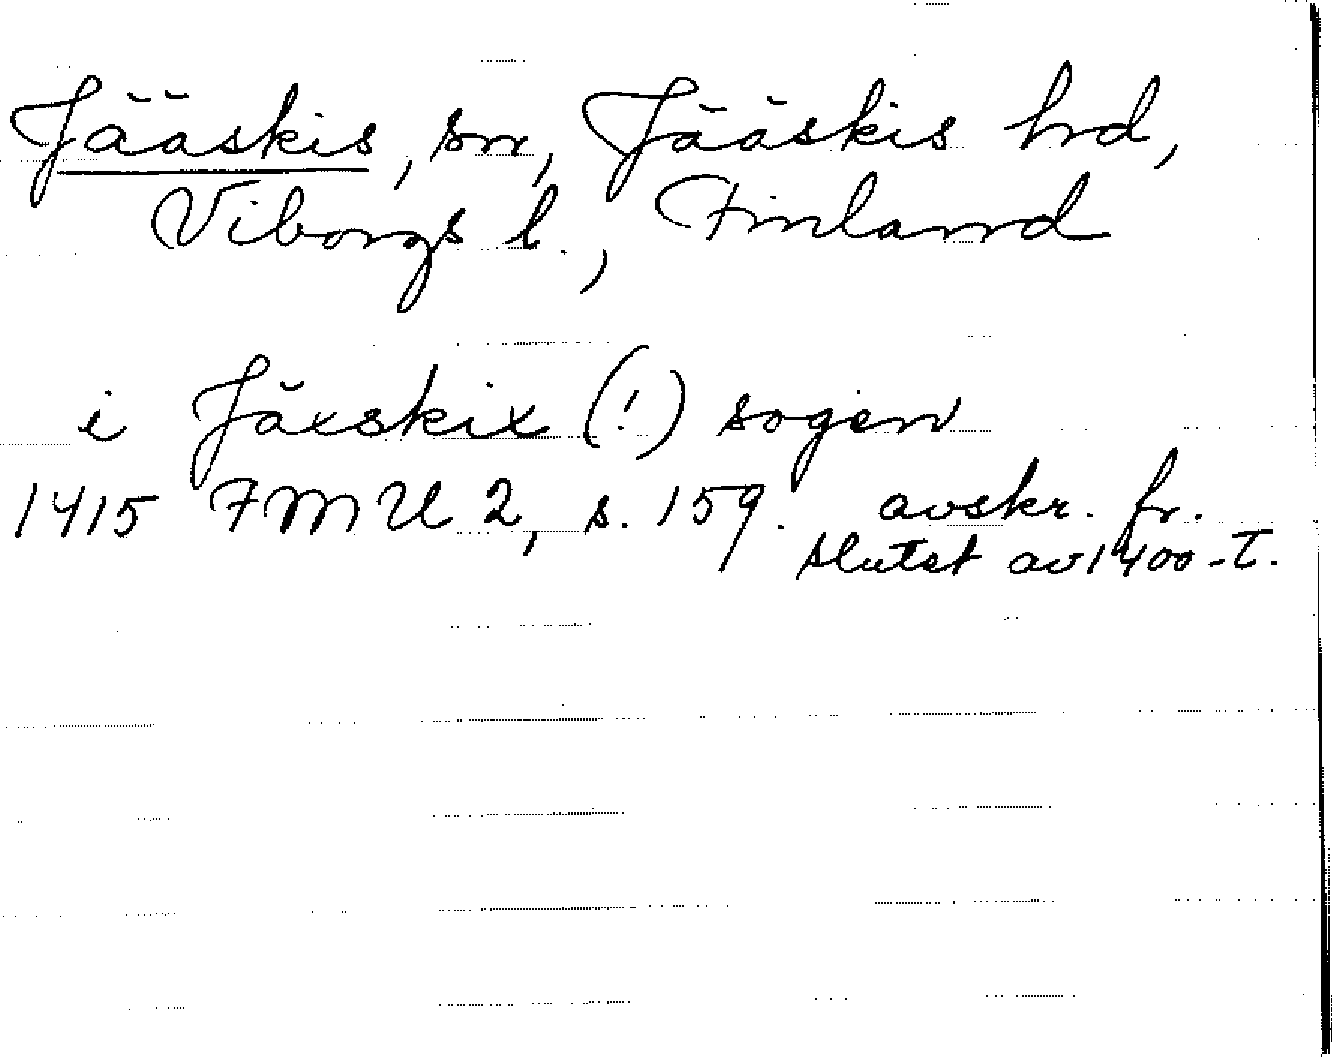 Jääskis, sn, Jääskis hrd,
Viborgs l., Finland
i Jäxskix (!) sogen
1415 FMU 2, s. 159. avskr. fr.
slutet av 1400-t.